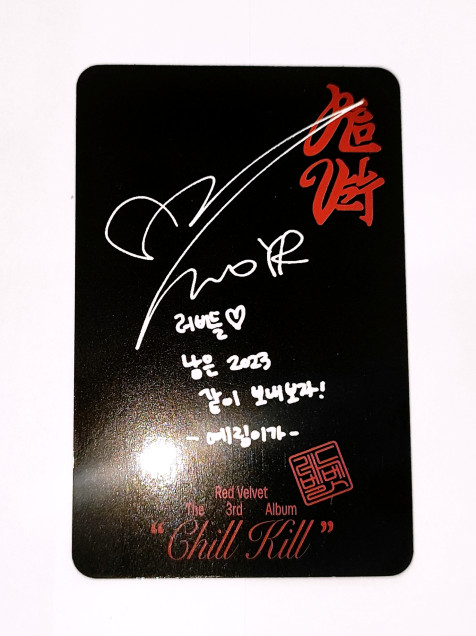 YR
러비들♡
남은 2023
같이 보내보자!
-예림이가-
레드
벨벳
Red Velvet
The 3rd Album
“Chill Kill”